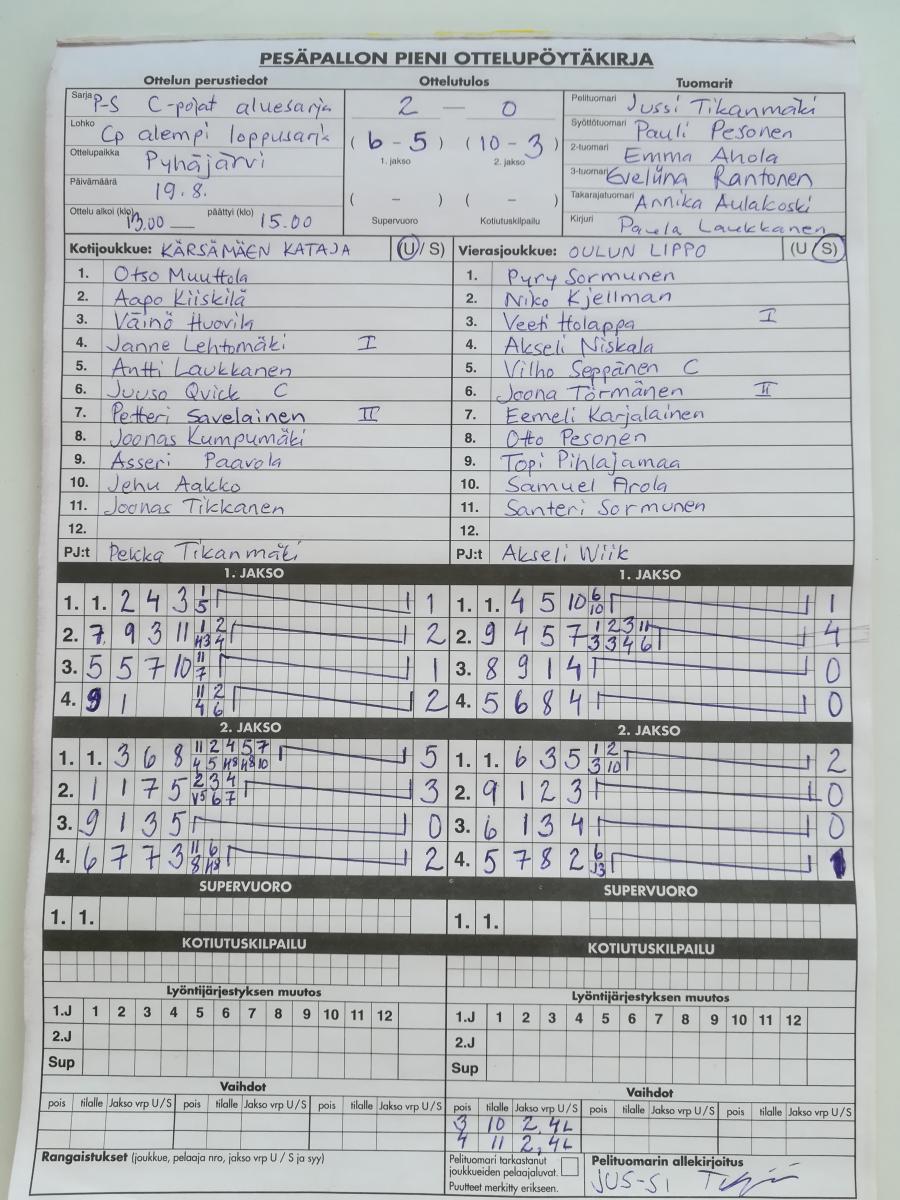 PESÄPALLON PIENI OTTELUPÖYTÄKIRJA
Ottelun perustiedot Ottelutulos Tuomarit
Sarja P-S C-pojat aluesarja 2 — 0 Pelituomari Jussi Tikanmäki
Lohko Cp alempi loppusarja (6 - 5) (10 - 3) Syöttötuomari Pauli Pesonen
1. jakso 2. jakso
Ottelupaikka Pyhäjärvi 2-tuomari Emma Ahola
Päivämäärä 19.8. 3-tuomari Eveliina Rantonen
( - ) ( - ) Takarajatuomari Annika Aulakoski
Ottelu alkoi (klo) 13.00 — päättyi (klo) 15.00 Supervuoro Kotiutuskilpailu Kirjuri Paula Laukkanen
Kotijoukkue: KÄRSÄMÄEN KATAJA (U / S) Vierasjoukkue: OULUN LIPPO (U / S)
1. Otso Muuttola 1. Pyry Sormunen
2. Aapo Kiiskilä 2. Niko Kjellman
3. Väinö Huovila 3. Veeti Holappa I
4. Janne Lehtomäki I 4. Akseli Niskala
5. Antti Laukkanen 5. Vilho Seppänen C
6. Juuso Qvick C 6. Joona Törmänen II
7. Petteri Savelainen II 7. Eemeli Karjalainen
8. Joonas Kumpumäki 8. Otto Pesonen
9. Asseri Paavola 9. Topi Pihlajamaa
10. Jehu Aakko 10. Samuel Arola
11. Joonas Tikkanen 11. Santeri Sormunen
12. 12.
PJ:t Pekka Tikanmäki PJ:t Akseli Wiik
1. JAKSO 1. JAKSO
1. 1. 2 4 3 1/5 1 1. 1. 4 5 10 6/10 1
2. 7 9 3 11 1/H3 2/4 2 2. 9 4 5 7 1/3 2/3 3/4 11/6 4
3. 5 5 7 10 11/7 1 3. 8 9 1 4 0
4. 9 1 11/4 2/6 2 4. 5 6 8 4 0
2. JAKSO 2. JAKSO
1. 1. 3 6 8 11/4 2/5 4/H8 5/H8 7/10 5 1. 1. 6 3 5 1/3 2/10 2
2. 1 1 7 5 2/V5 3/6 4/7 3 2. 9 1 2 3 0
3. 9 1 3 5 0 3. 6 1 3 4 0
4. 6 7 7 3 11/8 6/H8 2 4. 5 7 8 2 6/J3 1
SUPERVUORO SUPERVUORO
1. 1. 1. 1.
KOTIUTUSKILPAILU KOTIUTUSKILPAILU
Lyöntijärjestyksen muutos Lyöntijärjestyksen muutos
1.J 1 2 3 4 5 6 7 8 9 10 11 12 1.J 1 2 3 4 5 6 7 8 9 10 11 12
2.J 2.J
Sup Sup
Vaihdot Vaihdot
pois tilalle Jakso vrp U/S pois tilalle Jakso vrp U/S pois tilalle Jakso vrp U/S pois tilalle Jakso vrp U/S pois tilalle Jakso vrp U/S pois tilalle Jakso vrp U/S
3 10 2,4L
4 11 2,4L
Rangaistukset (joukkue, pelaaja nro, jakso vrp U / S ja syy) Pelituomari tarkastanut Pelituomarin allekirjoitus
joukkueiden pelaajaluvat.
Puutteet merkitty erikseen. JUS-SI